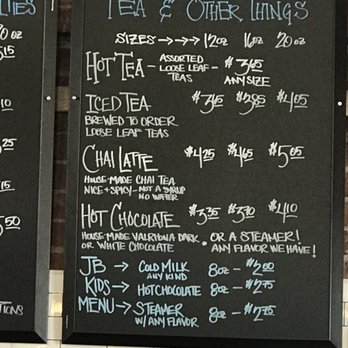 TEA & OTHER THINGS
SIZES → → → 12oz 16oz 20oz
HOT TEA - ASSORTED LOOSE LEAF TEAS - $3.65 ANY SIZE
ICED TEA $3.45 $3.85 $4.05
BREWED TO ORDER
LOOSE LEAF TEAS
CHAI LATTE $4.25 $4.65 $5.05
HOUSE-MADE CHAI TEA
NICE + SPICY - NOT A SYRUP
NO WATER
HOT CHOCOLATE $3.35 $3.70 $4.10
HOUSE-MADE VALRHONA DARK • OR A STEAMER!
OR WHITE CHOCOLATE ANY FLAVOR WE HAVE!
JB → COLD MILK 8oz - $2.00
ANY KIND
KIDS → HOT CHOCOLATE 8oz - $2.75
MENU → STEAMER 8oz - $2.75
W/ ANY FLAVOR